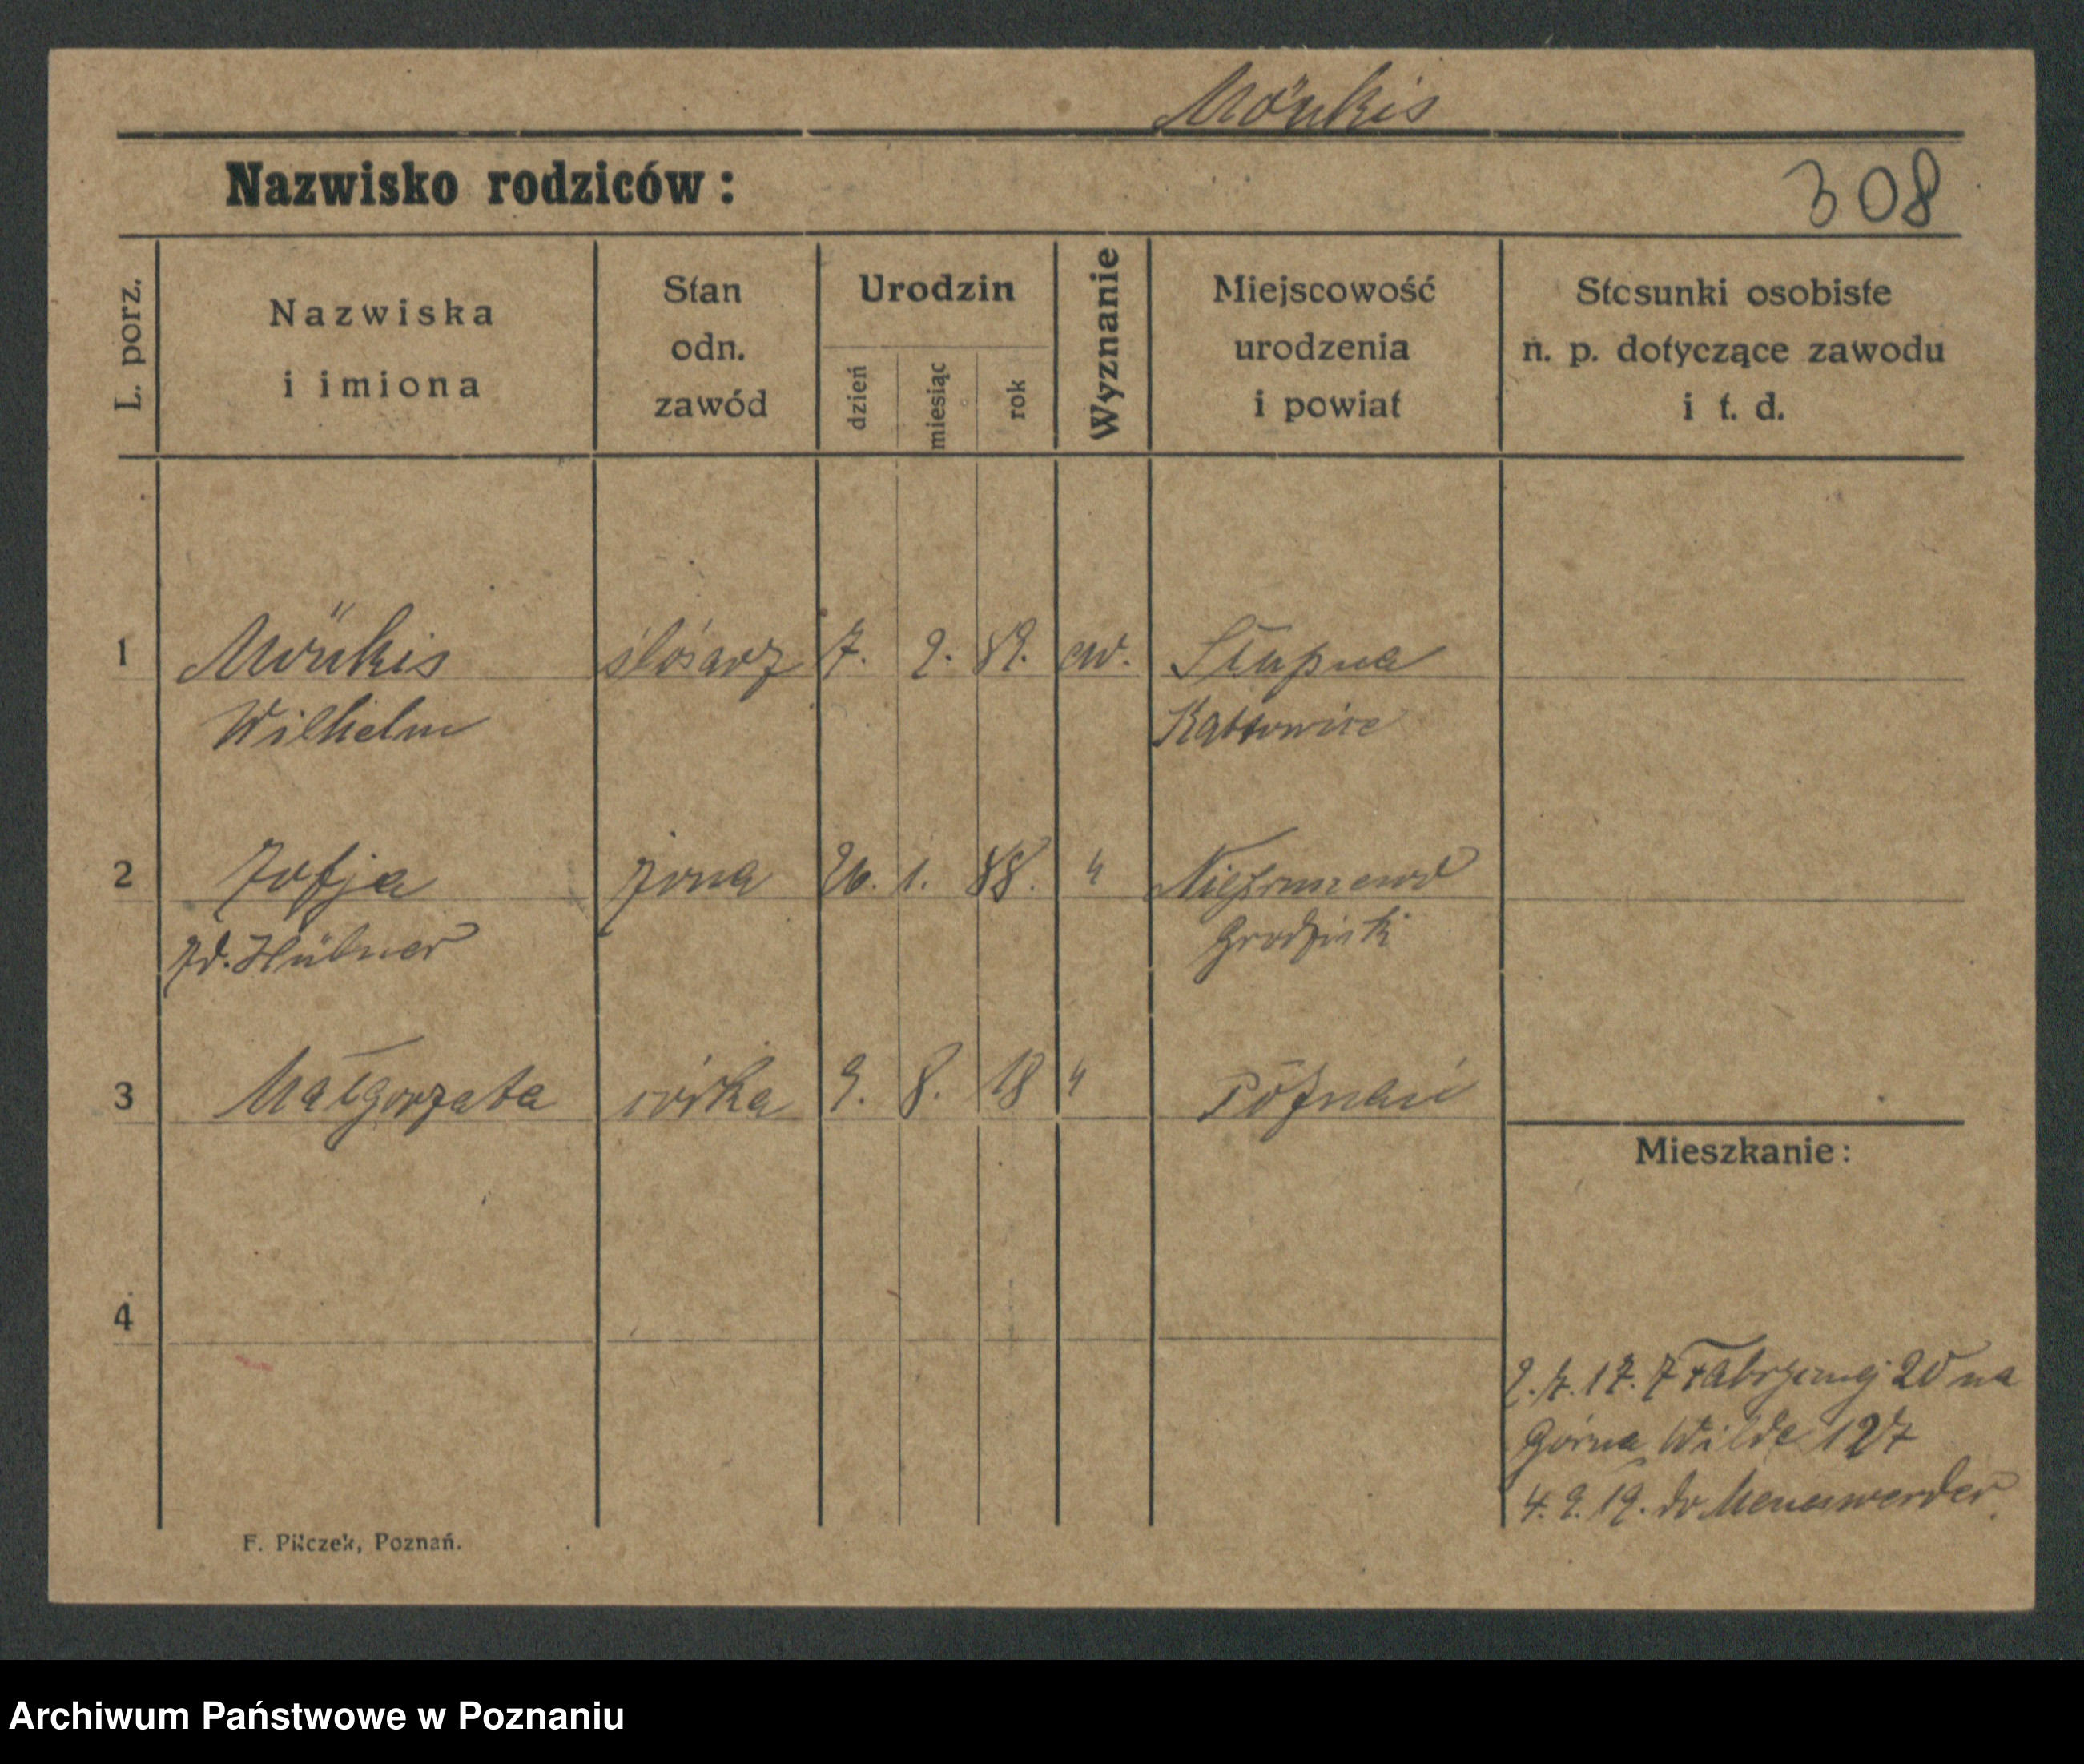 Mönkis
Nazwisko rodziców:
308
L. porz.
Nazwiska
i imiona
Stan
odn.
zawód
Urodzin
dzień
miesiąc
rok
Wyznanie
Miejscowość
urodzenia
i powiat
Stosunki osobiste
n. p. dotyczące zawodu
i t. d.
1 Mönkis ślósarz 7. 9. 89. ew. Słupna
Wilhelm Kattowice
2 Zofja żona 26. 1. 88. "
zd. Hübner Grodzisk
3 Małgorzata córka 9. 8. 18 " Poznań
Mieszkanie:
4
2. 7. 17. z Fabrycznej 20 na
Górna Wilda 127
4. 9. 19. do
F. Pilczek, Poznań.
Archiwum Państwowe w Poznaniu